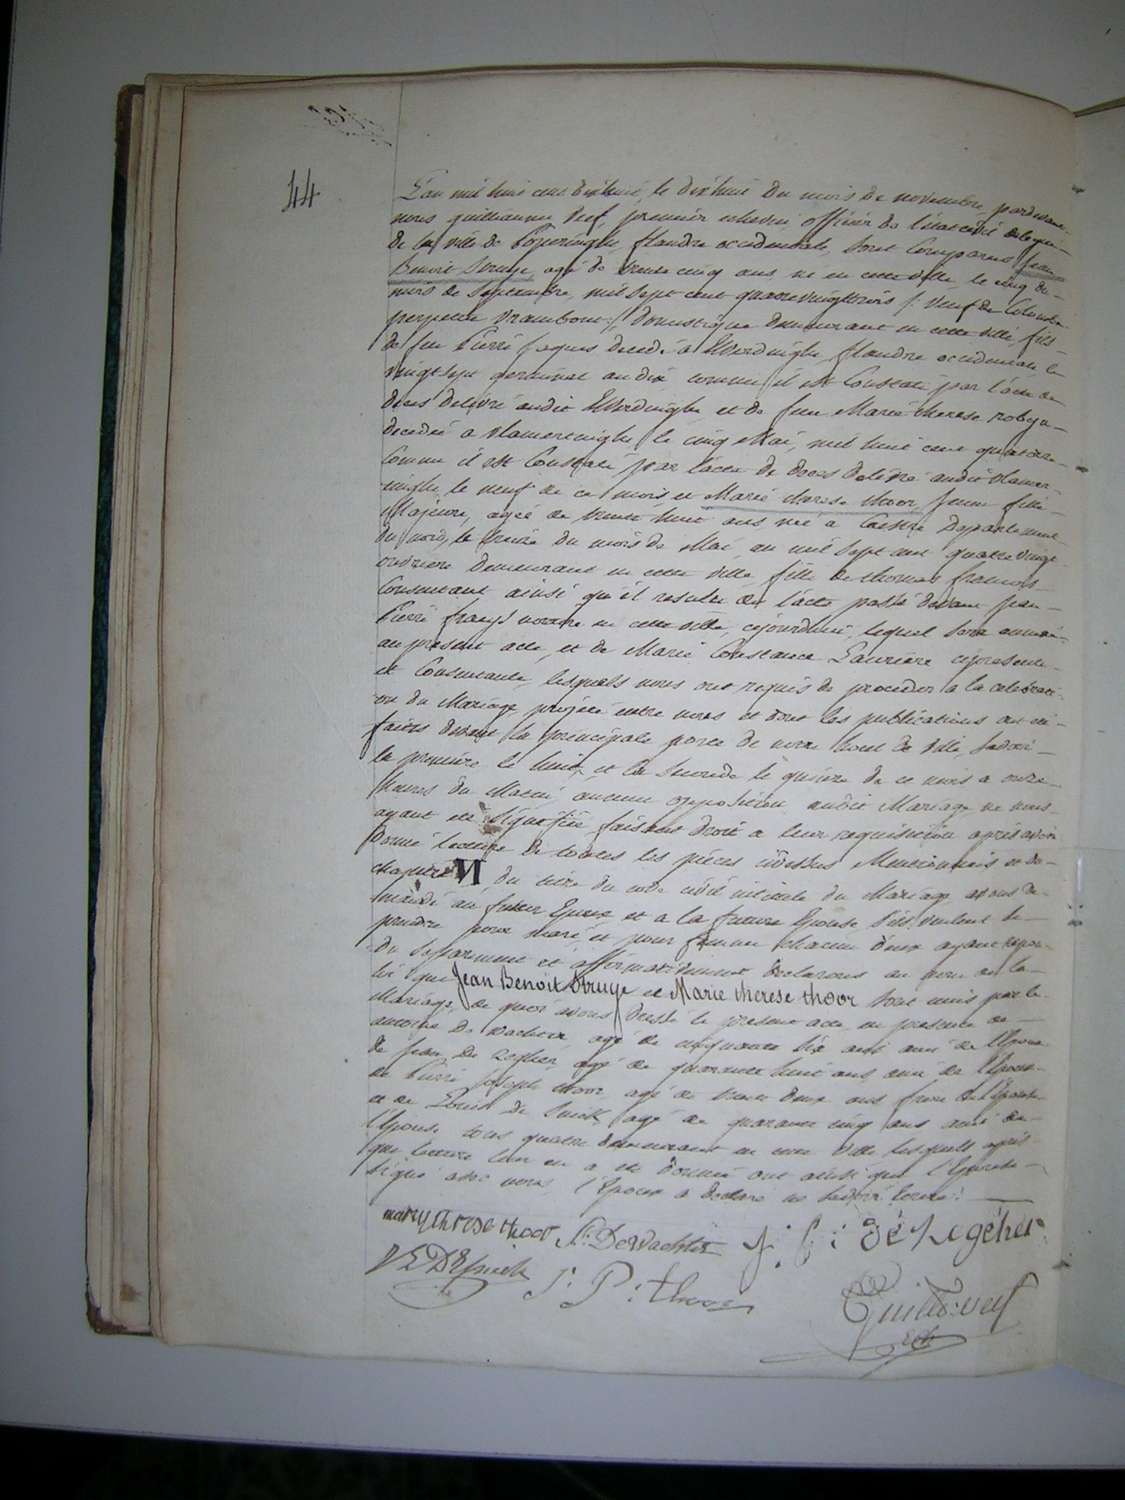 44
L'an mil huit cent dixhuit, le dixhuit du mois de novembre, pardevant
nous guillaume Veef premier echevin officier de l'état civil
de la ville de Poperinghe, flandre occidentale, sont Comparus Jean
Benoit Struye, agé de trente cinq ans né en cette ville, le cinq du
mois de Septembre, mil sept cent quatrevingttrois /: veuf de Colombe
perpetue :/ Domestique demeurant en cette ville, fils
de feu Pierre Jaques decedé à Elverdinghe, flandre occidentale le
vingtsept germinal an dix comme il est Constaté par l'acte de
deces delivré audit Elverdinghe et de feu Marie therese
decedée a Vlamertinghe le cinq Mai, mil huit cent quatorze
Comme il est Constaté par l'acte de deces delivré audit Vlamer-
tinghe le neuf de ce mois et Marie therese thoor, Jeune fille
Majeure, agée de trente huit ans née a Caestre Departement
du nord, le treize du mois de Mai, an mil sept cent quatre vingt
ouvriere demeurant en cette ville fille de thomas francois
Consentant ainsi qu'il resulte de l'acte passé devant Jean
Pierre notaire en cette ville, cejourdhui, lequel sera annexé
au présent acte, et de Marie Constance cipresente
et Consentante, lesquels nous ont requis de proceder a la celebrati-
on du Mariage projeté entre eux et dont les publications ont été
faites devant la principale porte de notre hotel de ville, savoir
la premiere le huit, et la Seconde le quinze de ce mois a onze
heures du Matin, aucune opposition audit Mariage ne nous
ayant été Signifiée faisant droit a leur requisition apres avoir
Donné lecture de toutes les pièces cidessus Mentionnées et du
chapitre VI, du titre du code civil intitulé du Mariage avons de-
mandé au futur Epoux et a la future Epouse s'ils veulent se
prendre pour mari et pour femme chacun d'eux ayant repon-
du separement et affirmativement declarons au nom de la
loi que Jean Benoit Struye et Marie therese thoor sont unis par le
Mariage, de quoi avons Dressé le présent acte en presence de
antoine De wachter, agé de cinquante six ans ami de l'Epoux
de Jean De Zegher, agé de quarante huit ans, ami de l'Epoux
de Pierre Joseph thoor, agé de trente deux ans frere de l'Epouse
et de Louis De Smidt, agé de quarante cinq ans ami de
l'Epouse tous quatre demeurant en cette ville lesquels après
que lecture leur en a été donnée ont ainsi que l'Epouse
Signé avec nous, l'Epoux a declaré ne savoir ecrire.
mary therese thoor A: DeWachter J: F: de Zegher
J: P: thoor
Guill: veef